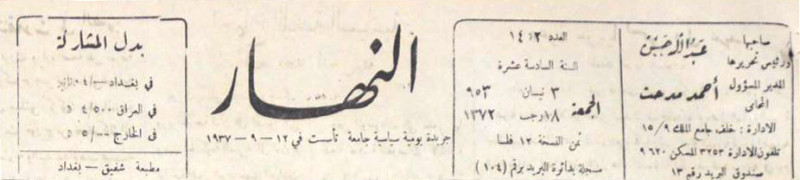 صاحبها
ورئيس تحريرها
المدير المسؤول
أحمد مدحت
المحامي
الادارة : خلف جامع الملك ١٥/٩
تلفون الادارة ٣٢٥٣ المسكن ٩٦٢٠
صندوق البريد رقم ١٣
العدد
السنة السادسة عشرة
الجمعة
٣ نيسان ٩٥٣
١٨ رجب ١٣٧٢
ثمن النسخة ١٢ فلسا
مسجلة بدائرة البريد برقم (١٠٤)
النهار
جريدة يومية سياسية جامعة تأسست في ١٢ - ٩ - ١٩٣٧
بدل المشاركة
في بغداد
في العراق ٤/٥٠٠
في الخارج
مطبعة شفيق - بغداد